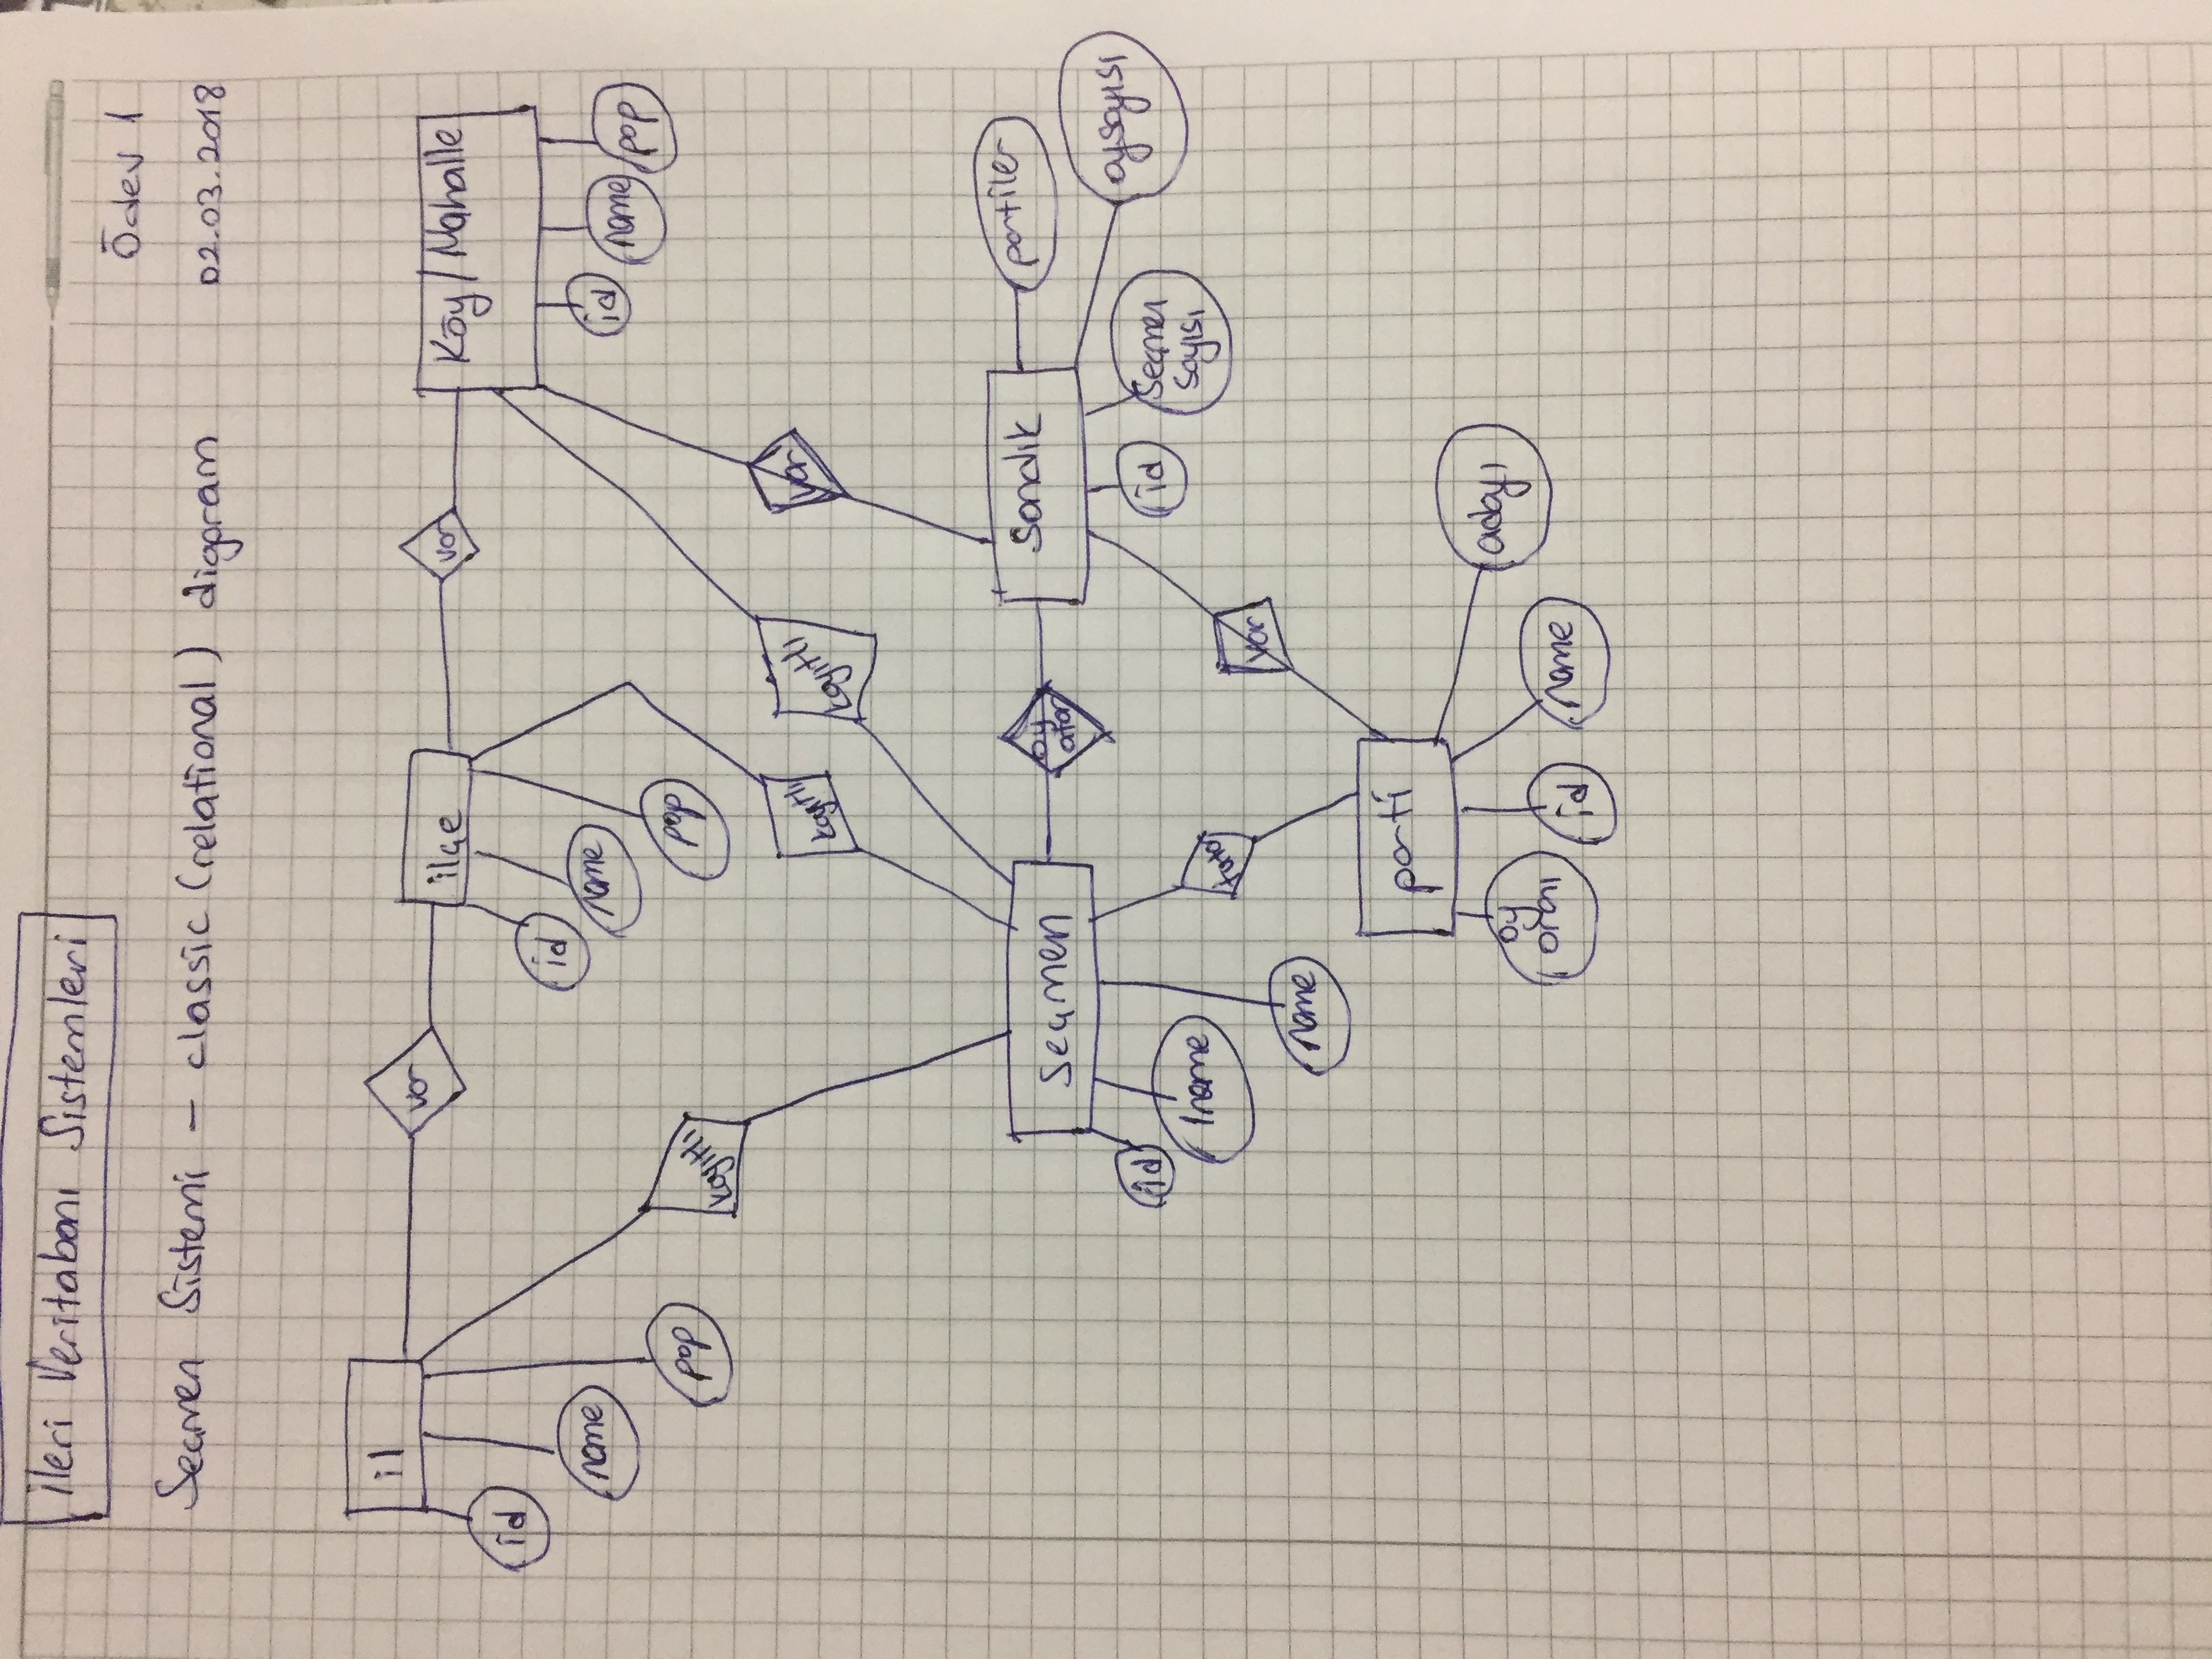 İleri Veritabanı Sistemleri
Ödev 1
Seçmen Sistemi - classic (relational) digoram
02.03.2018
il
var
ilçe
var
Köy/Mahalle
id
name
pop
id
name
pop
id
name
pop
kayıtlı
kayıtlı
kayıtlı
var
Seçmen
oy
atar
Sandık
partiler
oysayısı
id
lname
name
tutar
var
id
Seçmen
Sayısı
parti
adayı
oy
oranı
id
name